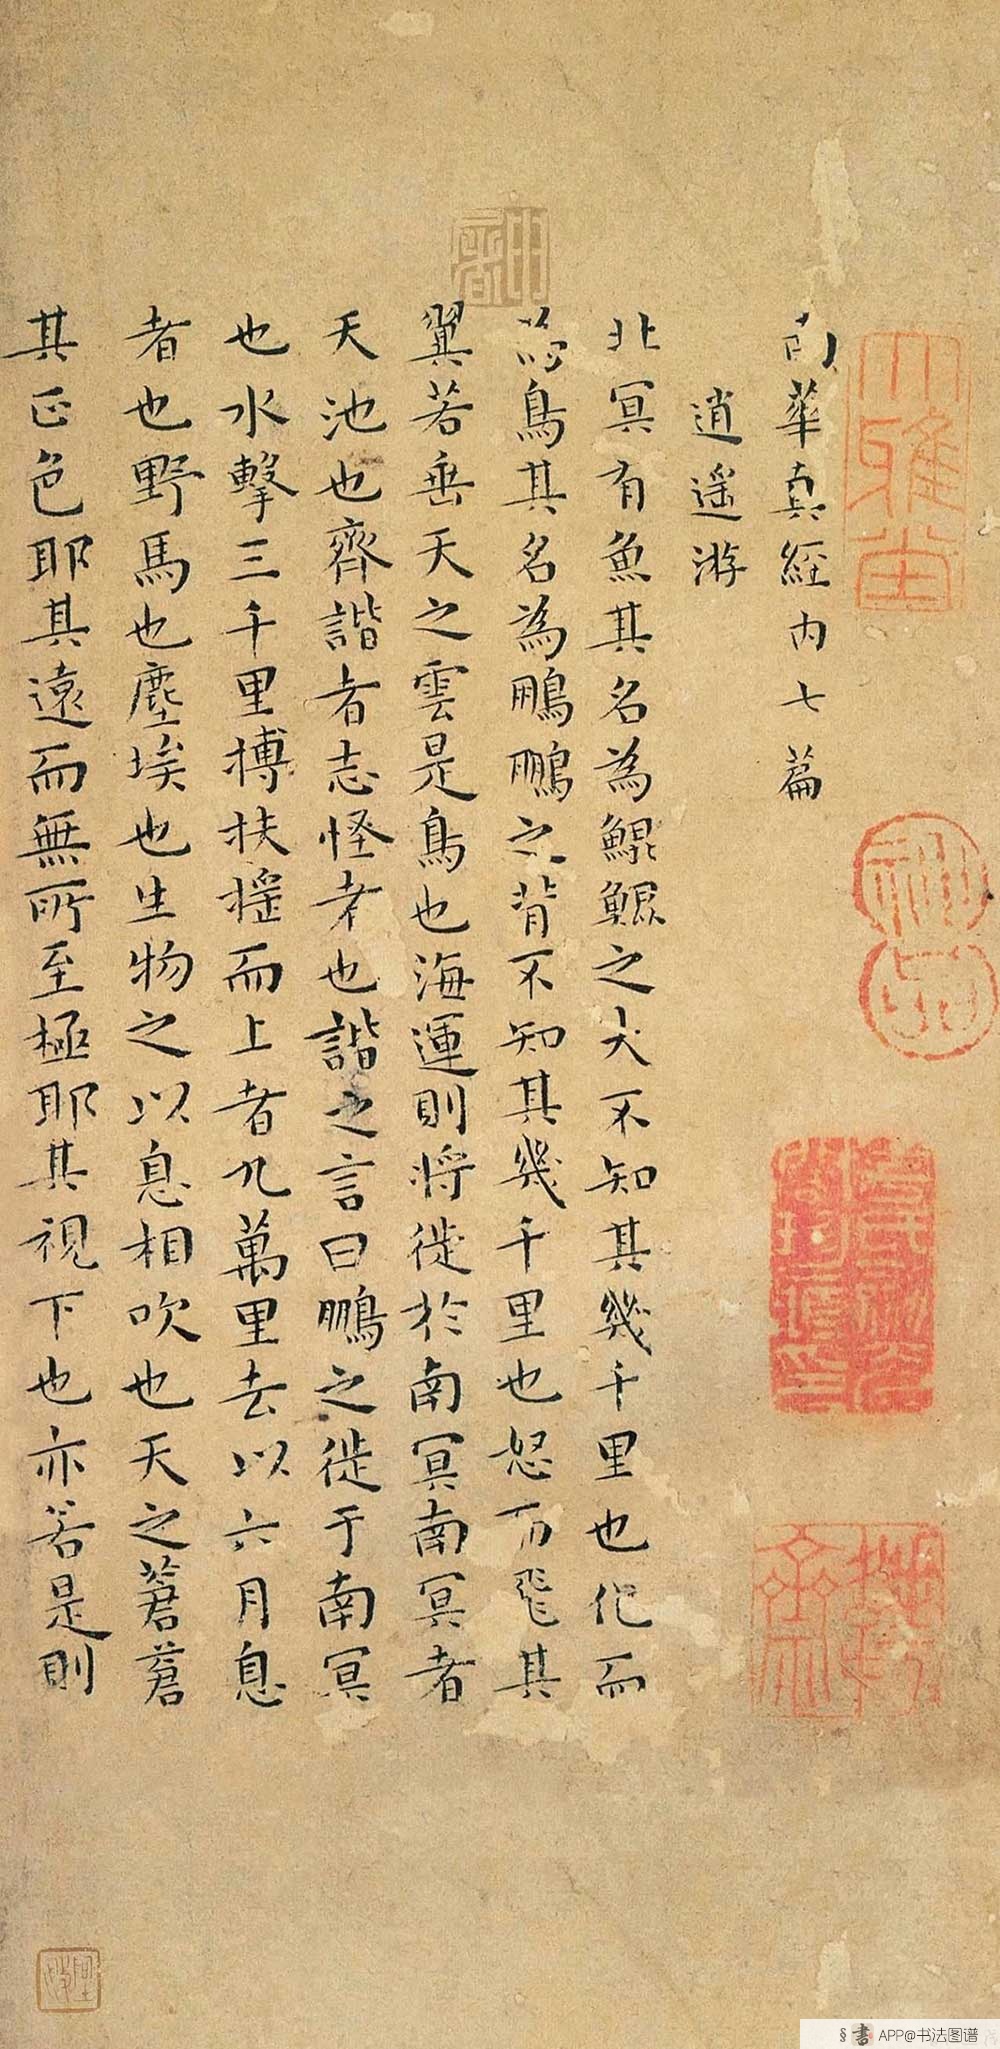 大雅堂
南華真經内七篇
逍遥游
北冥有魚其名為鯤鯤之大不知其幾千里也化而
為鳥其名為鵬鵬之背不知其幾千里也怒而飛其
翼若垂天之雲是鳥也海運則將徙於南冥南冥者
天池也齊諧者志怪者也諧之言曰鵬之徙于南冥
也水擊三千里搏扶摇而上者九萬里去以六月息
者也野馬也塵埃也生物之以息相吹也天之蒼蒼
其正色耶其遠而無所至極耶其視下也亦若是則
書 APP@书法图谱